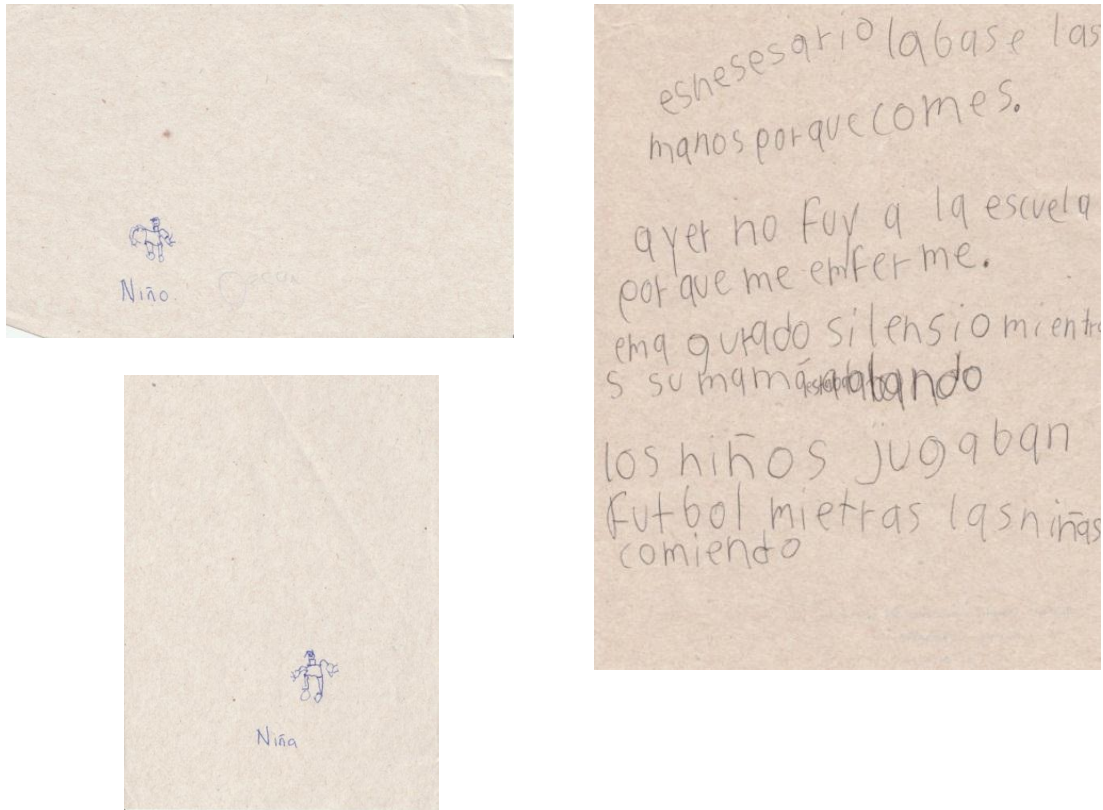 Niño.
Niña
esnesesario labase las
manos porque comes.
ayer no fuy a la escuela
por que me emferme.
ema gurado silensio mientra
s su mamá ablando
los niños jugaban
futbol mietras las niñas
comiendo